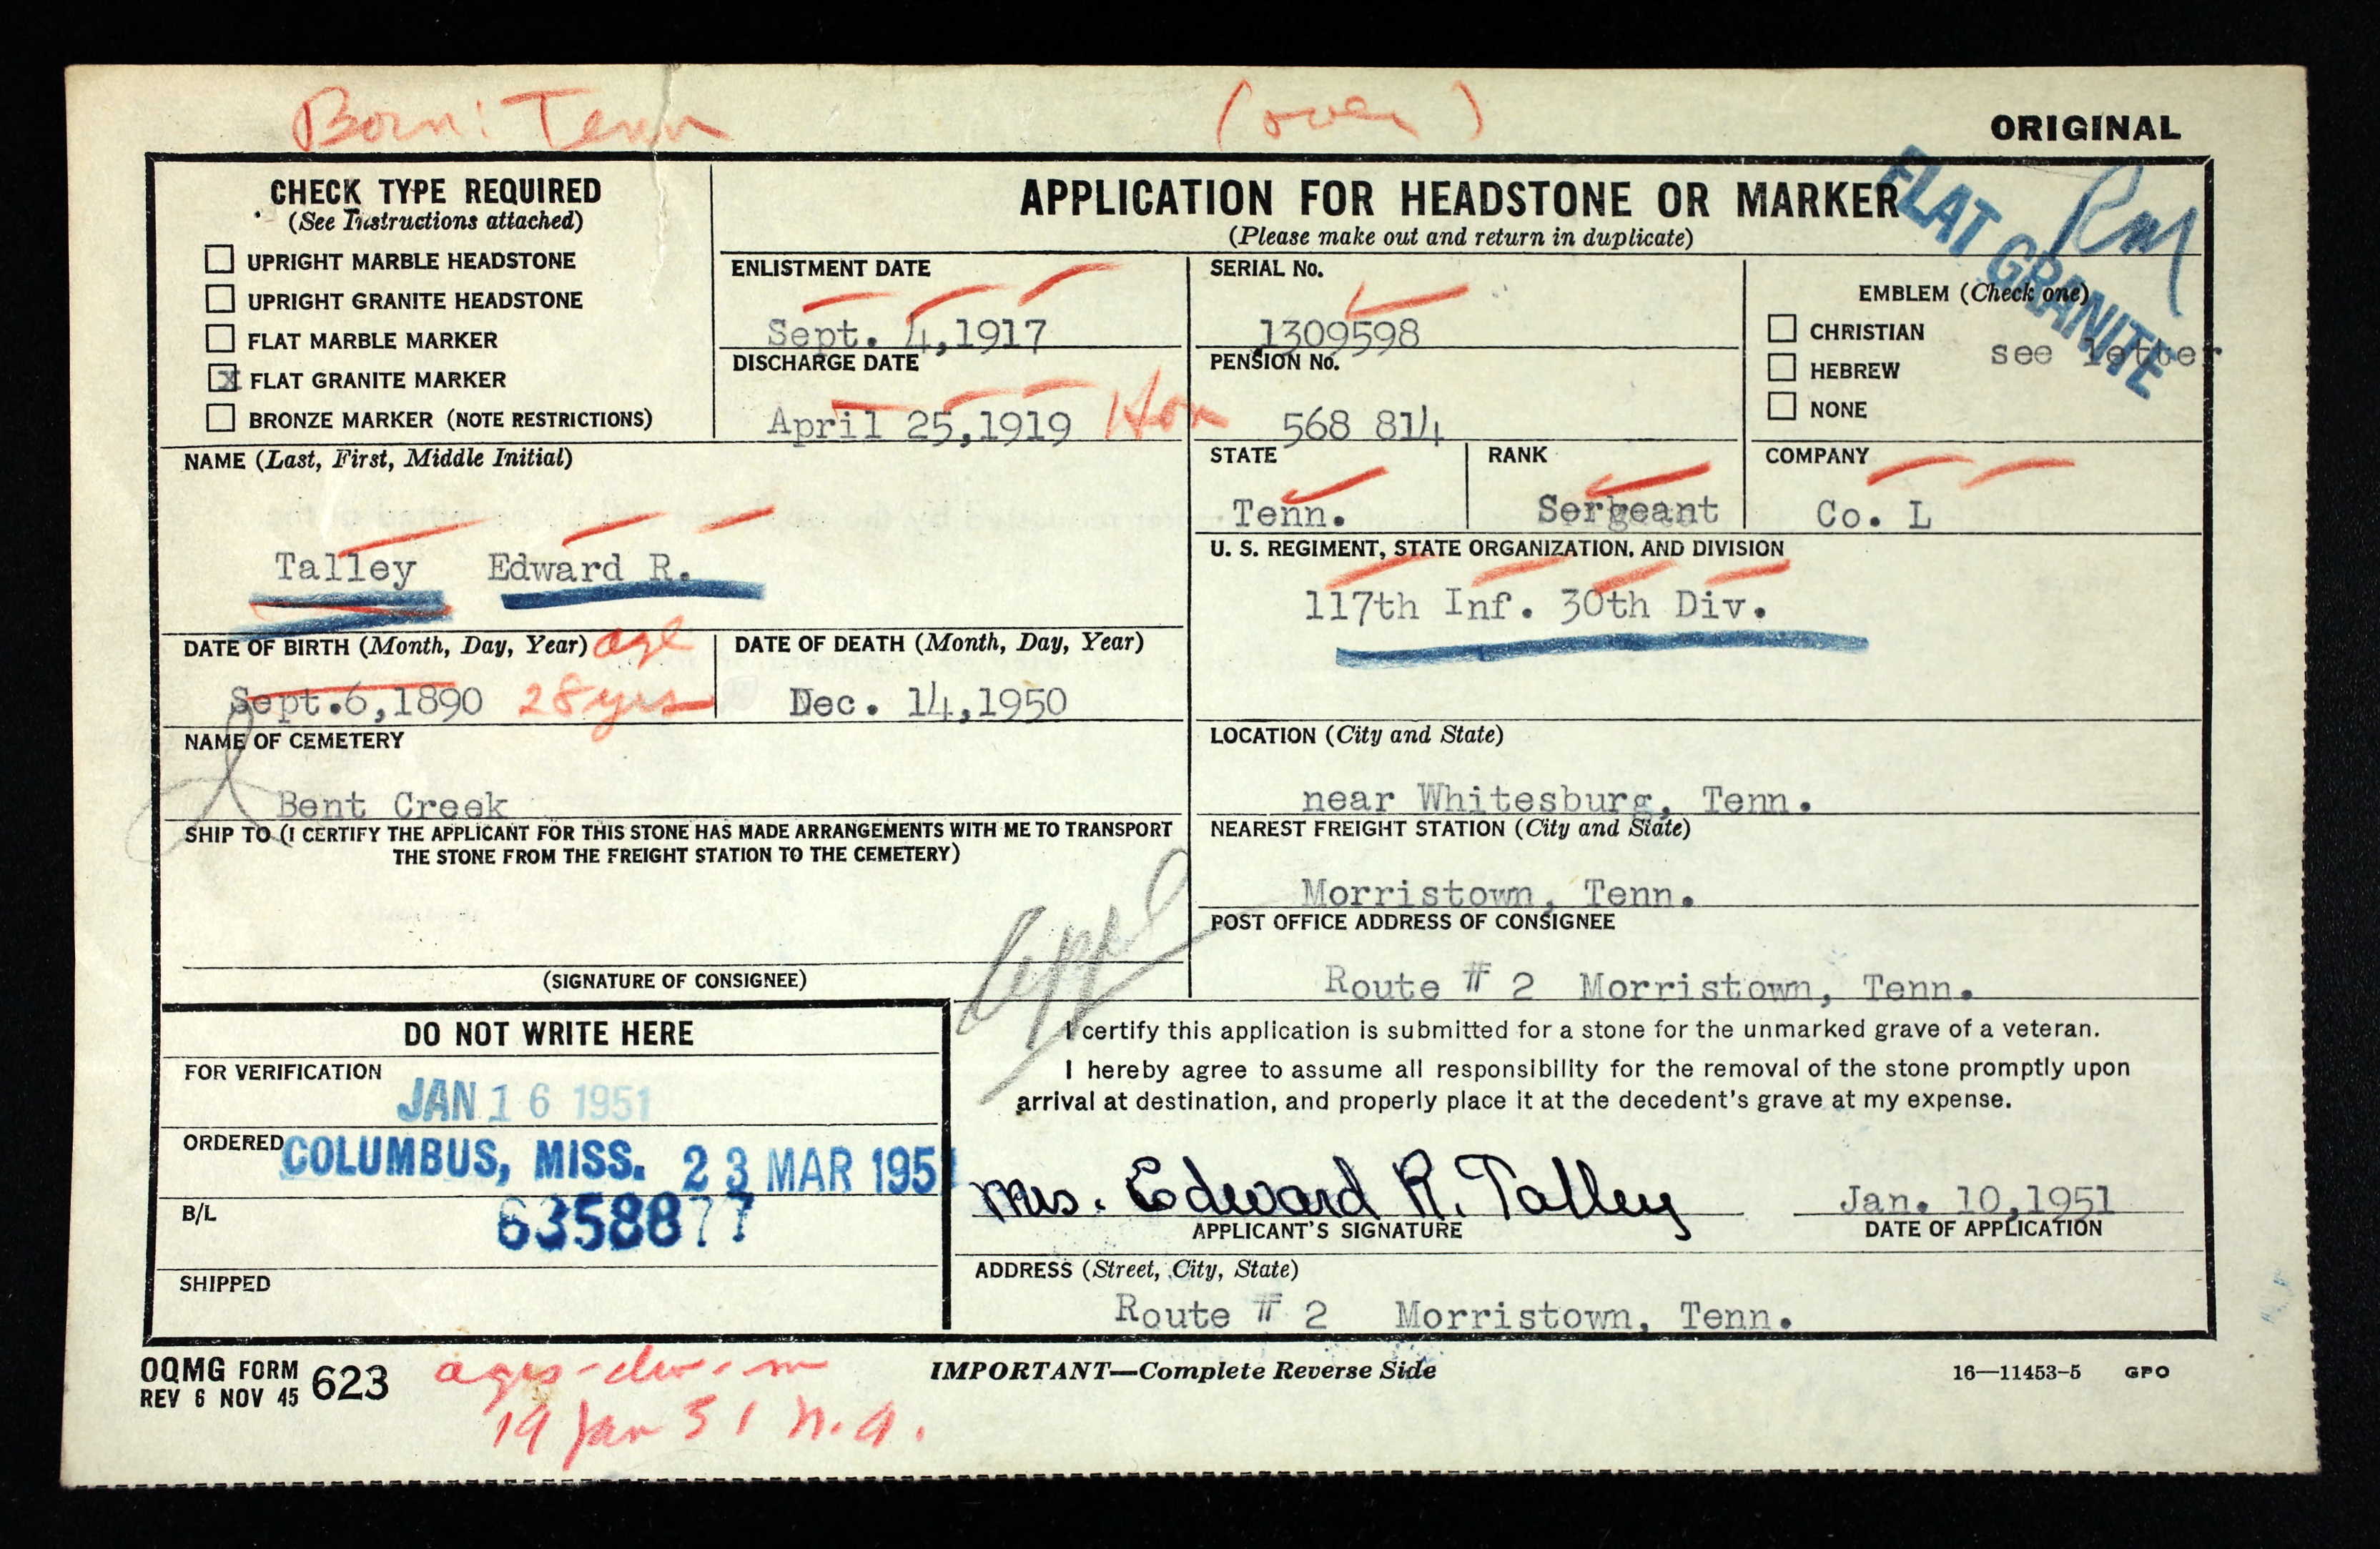 Born: Tenn (over)
ORIGINAL
CHECK TYPE REQUIRED
(See Instructions attached)
UPRIGHT MARBLE HEADSTONE
UPRIGHT GRANITE HEADSTONE
FLAT MARBLE MARKER
X FLAT GRANITE MARKER
BRONZE MARKER (NOTE RESTRICTIONS)
APPLICATION FOR HEADSTONE OR MARKER
(Please make out and return in duplicate)
FLAT GRANITE
ENLISTMENT DATE
Sept. 4,1917
DISCHARGE DATE
April 25,1919 Hon
SERIAL No.
1309598
PENSION No.
568 814
EMBLEM (Check one)
CHRISTIAN
HEBREW
NONE
see letter
NAME (Last, First, Middle Initial)
Talley Edward R.
STATE
Tenn.
RANK
Sergeant
COMPANY
Co. L
U. S. REGIMENT, STATE ORGANIZATION, AND DIVISION
117th Inf. 30th Div.
DATE OF BIRTH (Month, Day, Year) age
Sept.6,1890 28 yrs
DATE OF DEATH (Month, Day, Year)
Dec. 14,1950
NAME OF CEMETERY
Bent Creek
LOCATION (City and State)
near Whitesburg, Tenn.
SHIP TO (I CERTIFY THE APPLICANT FOR THIS STONE HAS MADE ARRANGEMENTS WITH ME TO TRANSPORT
THE STONE FROM THE FREIGHT STATION TO THE CEMETERY)
(SIGNATURE OF CONSIGNEE)
NEAREST FREIGHT STATION (City and State)
Morristown, Tenn.
POST OFFICE ADDRESS OF CONSIGNEE
Route # 2 Morristown, Tenn.
DO NOT WRITE HERE
FOR VERIFICATION
JAN 16 1951
ORDERED
COLUMBUS, MISS. 23 MAR 1951
B/L
6358877
SHIPPED
I certify this application is submitted for a stone for the unmarked grave of a veteran.
I hereby agree to assume all responsibility for the removal of the stone promptly upon
arrival at destination, and properly place it at the decedent's grave at my expense.
Mrs. Edward R. Talley
APPLICANT'S SIGNATURE
Jan. 10,1951
DATE OF APPLICATION
ADDRESS (Street, City, State)
Route # 2 Morristown, Tenn.
OQMG FORM 623
REV 6 NOV 45
IMPORTANT—Complete Reverse Side
16—11453-5 GPO
19 Jan 51 n.a.